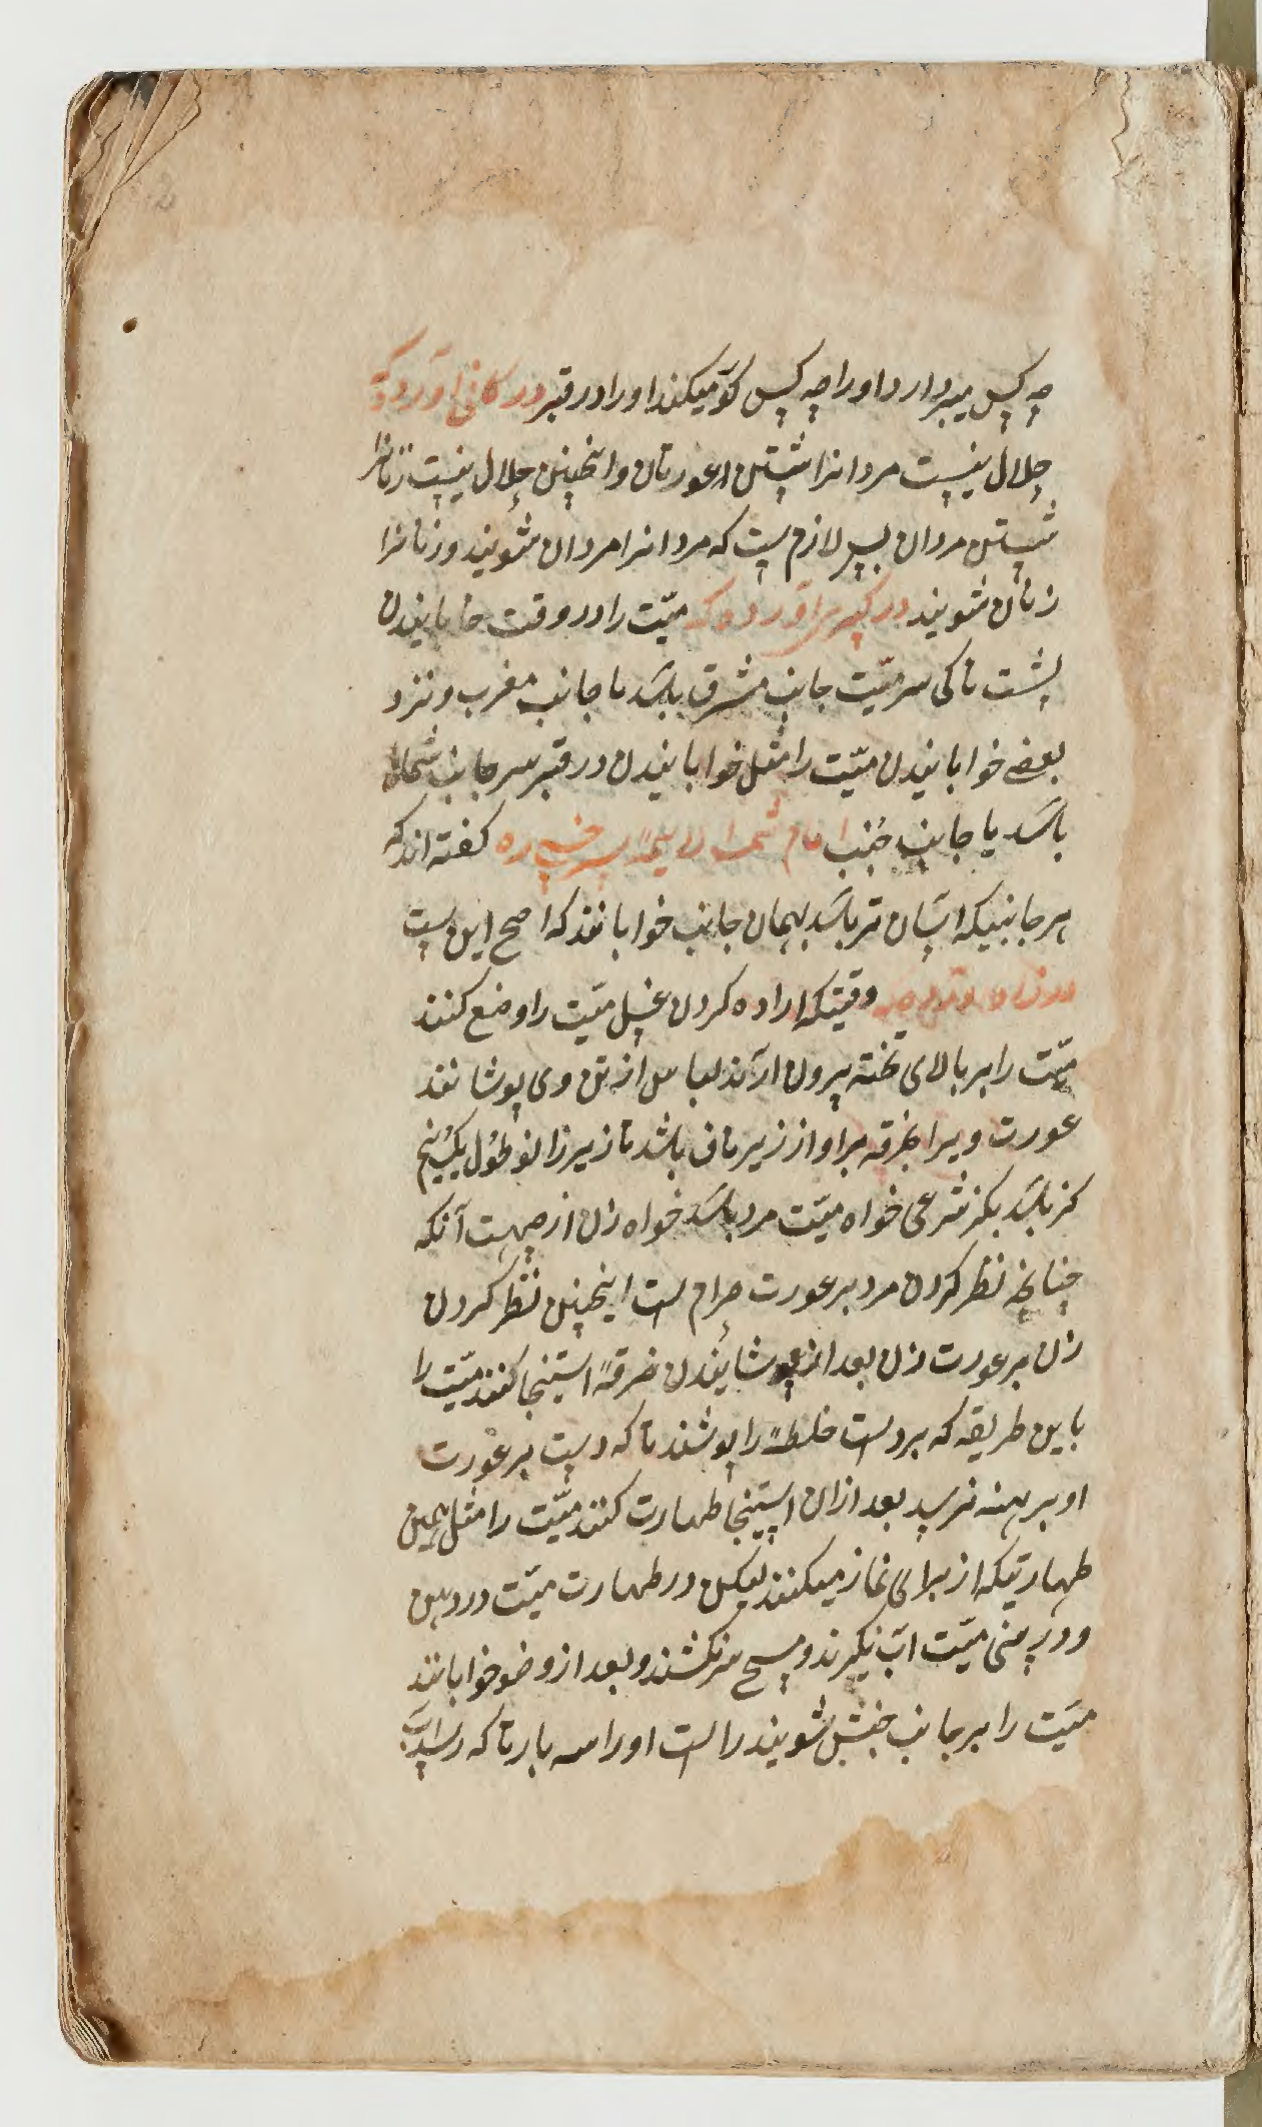 چه کس میبردارد او را چه کس کو میکند او را در قبر در کافی آورده که
حلال نیست مردانرا شستن عورتان و انچنین حلال نیست زنانرا
شستن مردان پس لازم ست که مردانرا مردان شویند و زنانرا
زنان شویند در آورده که میّت را در وقت خابانیدن
پشت تا کی سر میّت جانب مشرق باشد یا جانب مغرب و نزد
بعضے خوابانیدن میّت را مثل خوابانیدن در قبر سر جانب شمال
باشد یا جانب جنب امام سرخسی ره کفته اند که
هر جانبیکه اسان تر باشد بهمان جانب خوابانند که اصح این ست
وقتیکه اراده کردن غسل میّت را وضع کنند
میّت را بر بالای تخته بیرون ارند لباس از تن وی پوشانند
عورت ویرا بخرقه براو از زیر ناف باشد تا زیر زانو طول
کز باشد بکز شرعی خواه میّت مرد باشد خواه زن از جهت آنکه
چنانچه نظر کردن مرد بر عورت حرام است اینچنین نظر کردن
زن بر عورت زن بعد از پوشانیدن خرقهٔ استنجا کنند میّت را
باین طریقه که بر دست خلطهٔ را پوشند تا که دست بر عورت
او برهنه نرسد بعد ازان استنجا طهارت کنند میّت را مثل همین
طهارتیکه از برائ نماز میکنند لیکن در طهارت میّت در دهن
و در بینی میّت اب نکیرند و مسح سر نکشند و بعد از وضو خوابانند
میّت را بر جانب جنبش شویند راست او را سه بار تا که رسد اب